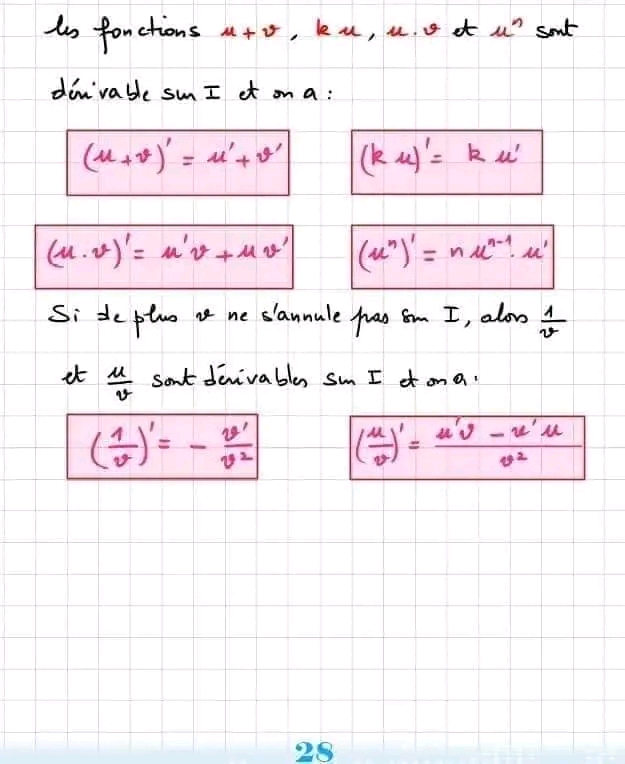 les fonctions u + v, k u, u.v et uⁿ sont
dérivable sur I et on a :
(u + v)' = u' + v' (k u)' = k u'
(u . v)' = u'v + u v' (uⁿ)' = n uⁿ⁻¹ . u'
Si de plus v ne s'annule pas sur I, alors 1/v
et u/v sont dérivables sur I et on a.
(1/v)' = - v'/v² (u/v)' = (u'v - v'u)/v²
28